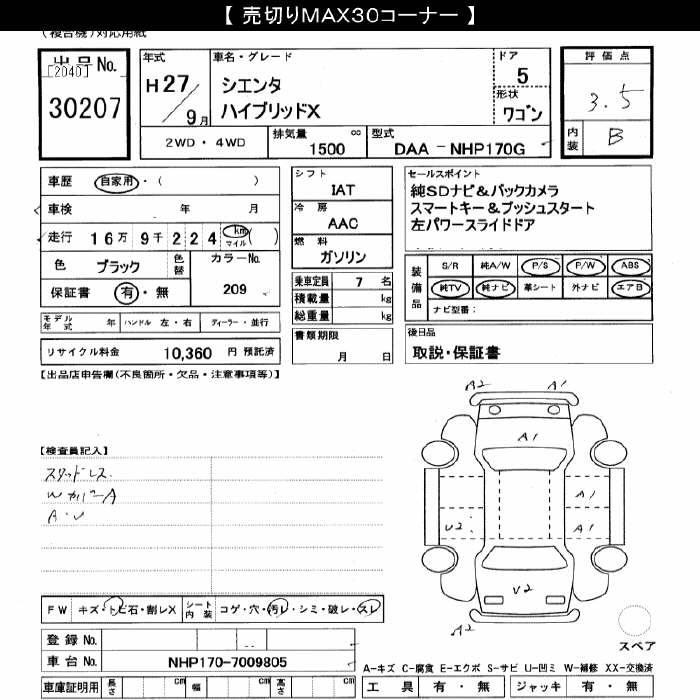 【 売切りMAX30コーナー 】
(複合機)対応用紙
出品No.
[2040]
30207
年式
H 27／9月
車名・グレード
シエンタ
ハイブリッドX
ドア
5
形状
ワゴン
評価点
3.5
内装
B
2WD・4WD
排気量
1500 cc
型式
DAA - NHP170G
車歴 自家用・( )
車検 年 月
走行 16万 9千 2 2 4 km マイル ( )
色 ブラック 色替 カラーNo.
保証書 有・無 209
シフト
IAT
冷房
AAC
燃料
ガソリン
乗車定員 7 名
積載量 kg
総重量 kg
書類期限
月 日
セールスポイント
純SDナビ＆バックカメラ
スマートキー＆プッシュスタート
左パワースライドドア
装備品
S/R 純A/W P/S P/W ABS
純TV 純ナビ 革シート 外ナビ エアB
ナビ型番：
後日品
取説・保証書
モデル年式 年 ハンドル 左・右 ディーラー・並行
リサイクル料金 10,360 円 預託済
【出品店申告欄(不良箇所・欠品・注意事項等)】
【検査員記入】
スタッドレス
WカバーA
A・U
A2 A1
A1
A1
U2 A1
U2
A2
スペア
FW キズ・トビ石・割レX シート内装 コゲ・穴・汚レ・シミ・破レ・スレ
登録No.
車台No. NHP170-7009805
車庫証明用 長さ cm 幅 cm 高さ cm
A-キズ C-腐食 E-エクボ S-サビ U-凹ミ W-補修 XX-交換済
工具 有・無 ジャッキ 有・無